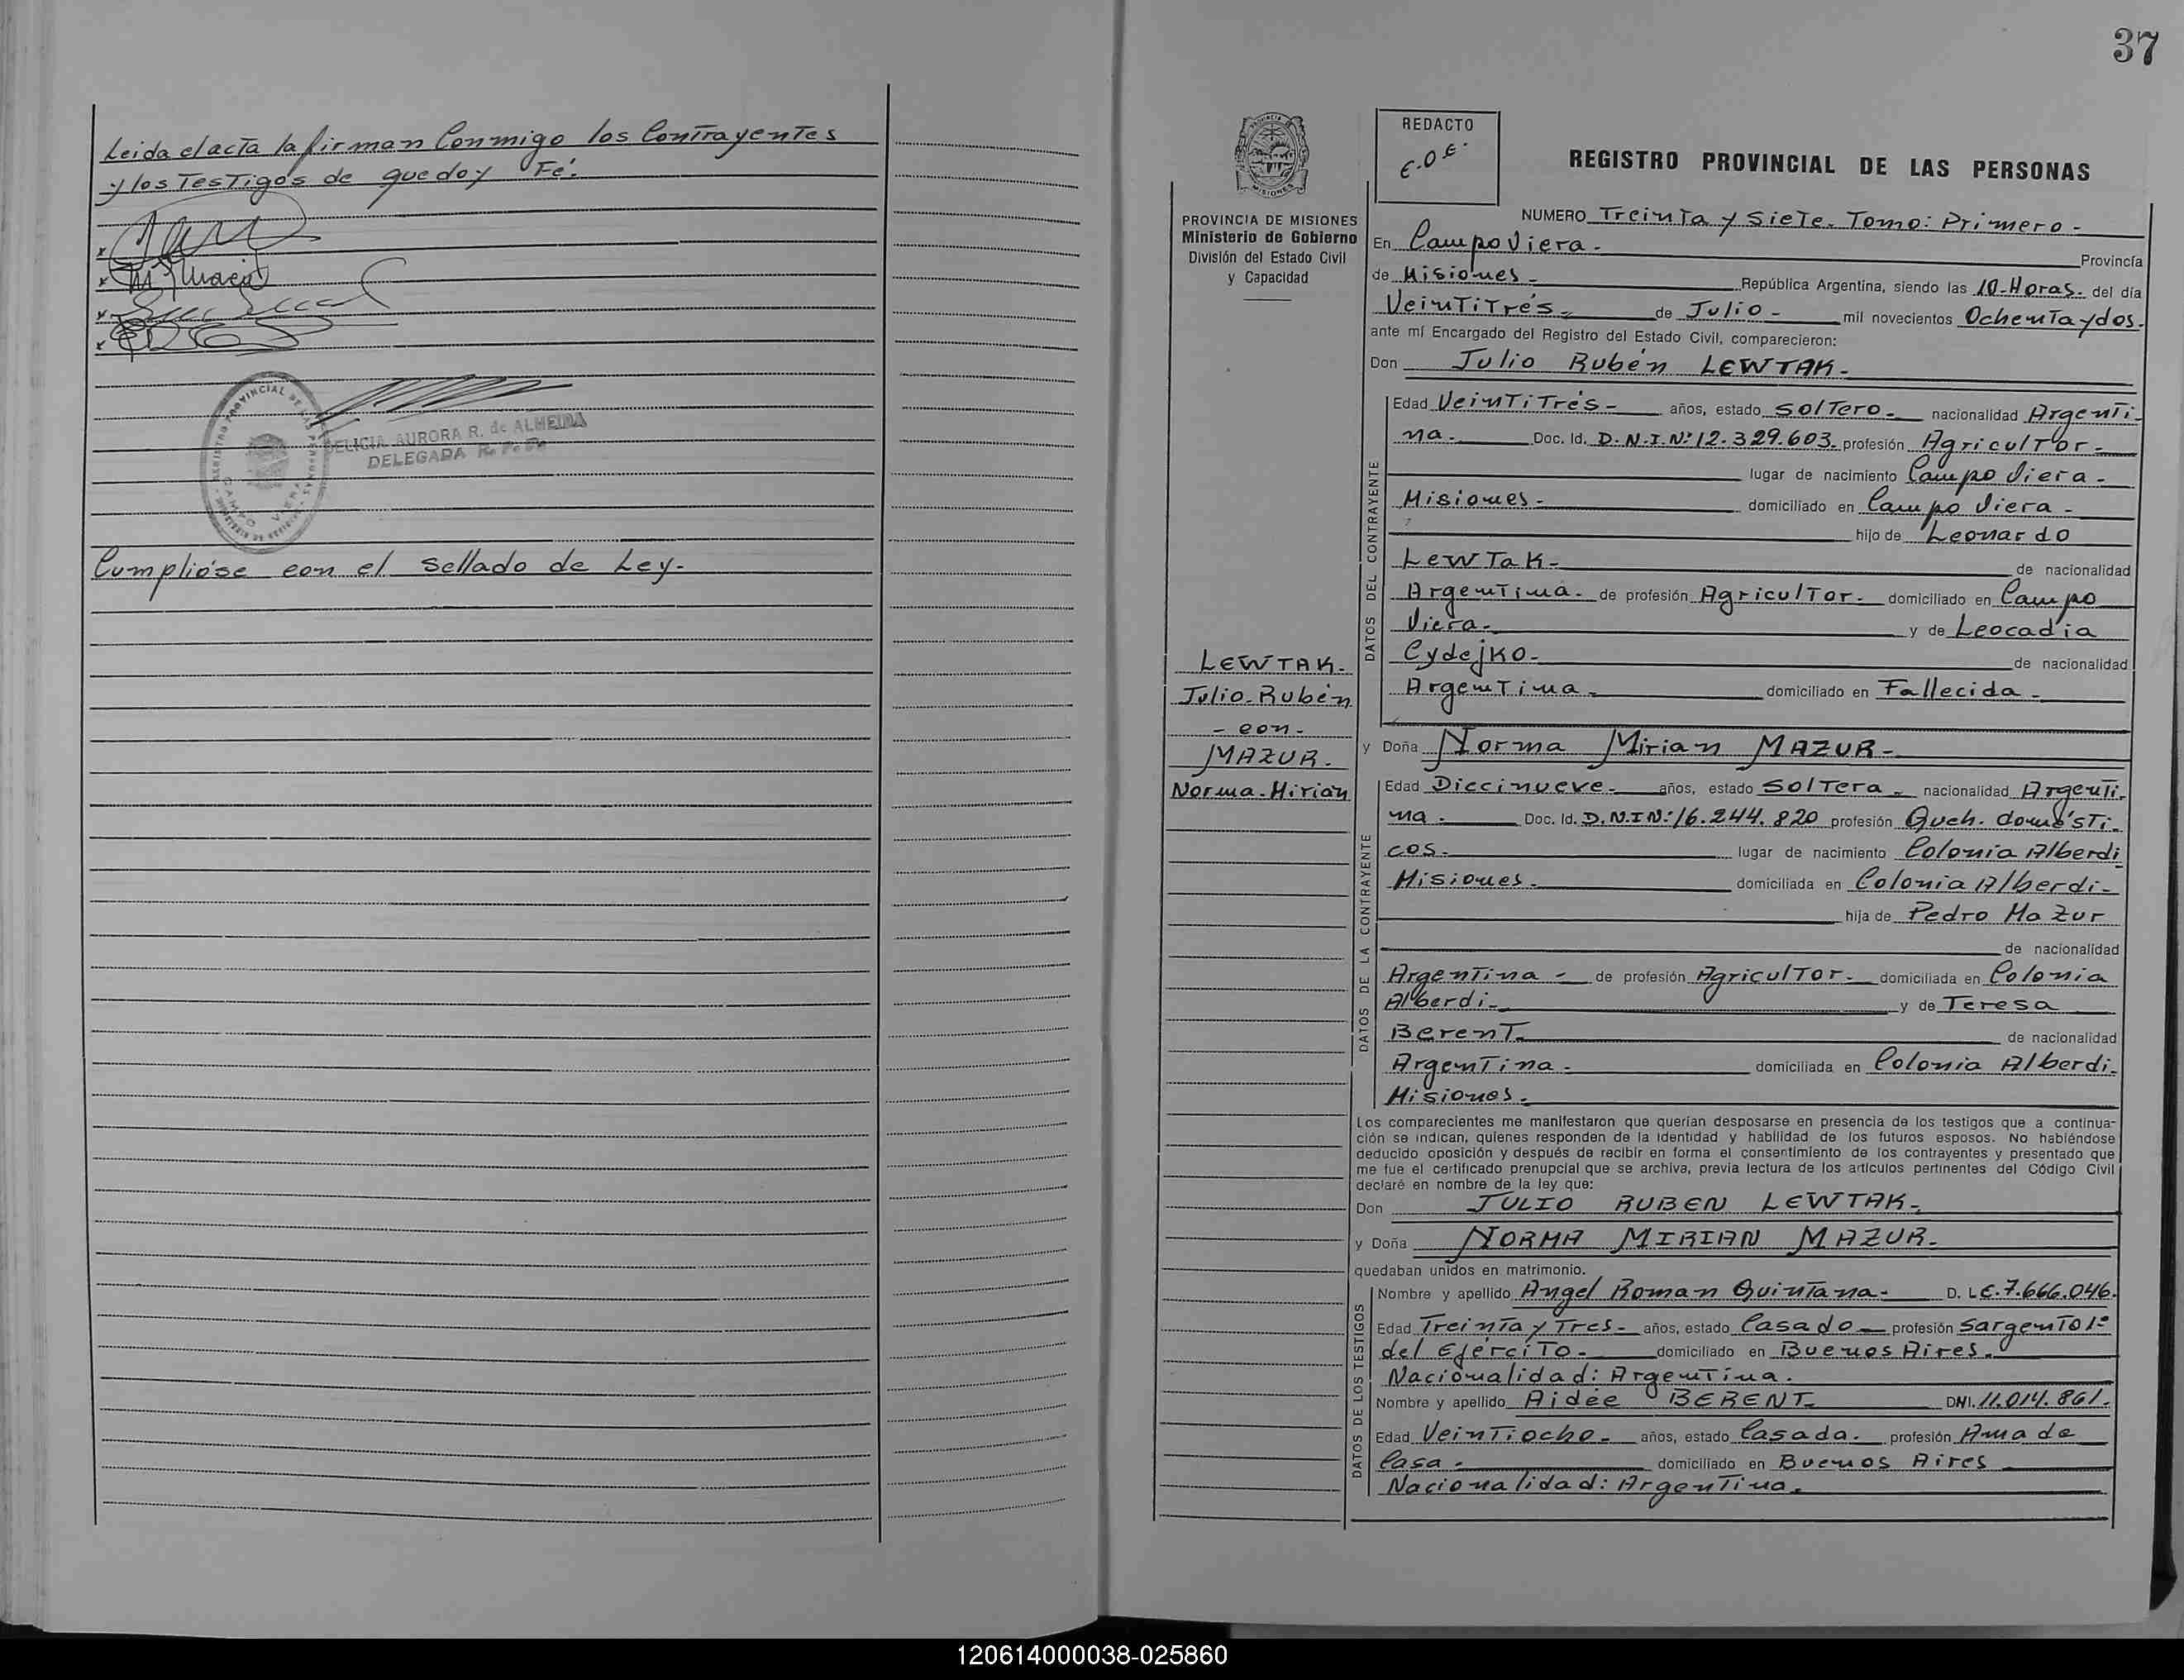 Leida el acta la firman Conmigo los Contrayentes
y los Testigos de que doy Fé.
DELICIA AURORA R. de ALMEIDA
DELEGADA R. P. P.
CAMPO VIERA
Cumplióse con el sellado de Ley.-
37
REDACTO
E.O.E.
REGISTRO PROVINCIAL DE LAS PERSONAS
PROVINCIA DE MISIONES
Ministerio de Gobierno
División del Estado Civil
y Capacidad
LEWTAK.
Julio-Rubén
- con -
MAZUR.
Norma-Mirian
NUMERO Treinta y Siete. Tomo: Primero -
En Campo Viera - Provincia
de Misiones - República Argentina, siendo las 10-Horas. del día
Veintitrés - de Julio - mil novecientos Ochenta y dos.
ante mí Encargado del Registro del Estado Civil, comparecieron:
Don Julio Rubén LEWTAK -
DATOS DEL CONTRAYENTE
Edad Veintitrés - años, estado Soltero - nacionalidad Argenti-
na - Doc. Id. D.N.I. Nº 12.329.603. profesión Agricultor -
lugar de nacimiento Campo Viera -
Misiones - domiciliado en Campo Viera -
hijo de Leonardo
Lewtak - de nacionalidad
Argentina - de profesión Agricultor - domiciliado en Campo
Viera - y de Leocadia
Cydejko - de nacionalidad
Argentina - domiciliado en Fallecida -
y Doña Norma Mirian MAZUR -
DATOS DE LA CONTRAYENTE
Edad Diecinueve - años, estado Soltera - nacionalidad Argenti-
na - Doc. Id. D.N.I Nº: 16.244.820 profesión Queh. domésti-
cos - lugar de nacimiento Colonia Alberdi
Misiones - domiciliada en Colonia Alberdi -
hija de Pedro Mazur
de nacionalidad
Argentina - de profesión Agricultor - domiciliada en Colonia
Alberdi - y de Teresa
Berent - de nacionalidad
Argentina - domiciliada en Colonia Alberdi -
Misiones -
Los comparecientes me manifestaron que querían desposarse en presencia de los testigos que a continua-
ción se indican, quienes responden de la identidad y habilidad de los futuros esposos. No habiéndose
deducido oposición y después de recibir en forma el consentimiento de los contrayentes y presentado que
me fue el certificado prenupcial que se archiva, previa lectura de los artículos pertinentes del Código Civil
declaré en nombre de la ley que:
Don JULIO RUBEN LEWTAK -
y Doña NORMA MIRIAN MAZUR -
quedaban unidos en matrimonio.
DATOS DE LOS TESTIGOS
Nombre y apellido Angel Roman Quintana - D. L.E. 7.666.046.
Edad Treinta y Tres - años, estado Casado - profesión Sargento 1º
del Ejército - domiciliado en Buenos Aires -
Nacionalidad: Argentina.
Nombre y apellido Aidée BERENT - DNI. 11.014.861.
Edad Veintiocho - años, estado Casada - profesión Ama de
Casa - domiciliado en Buenos Aires
Nacionalidad: Argentina.
120614000038-025860